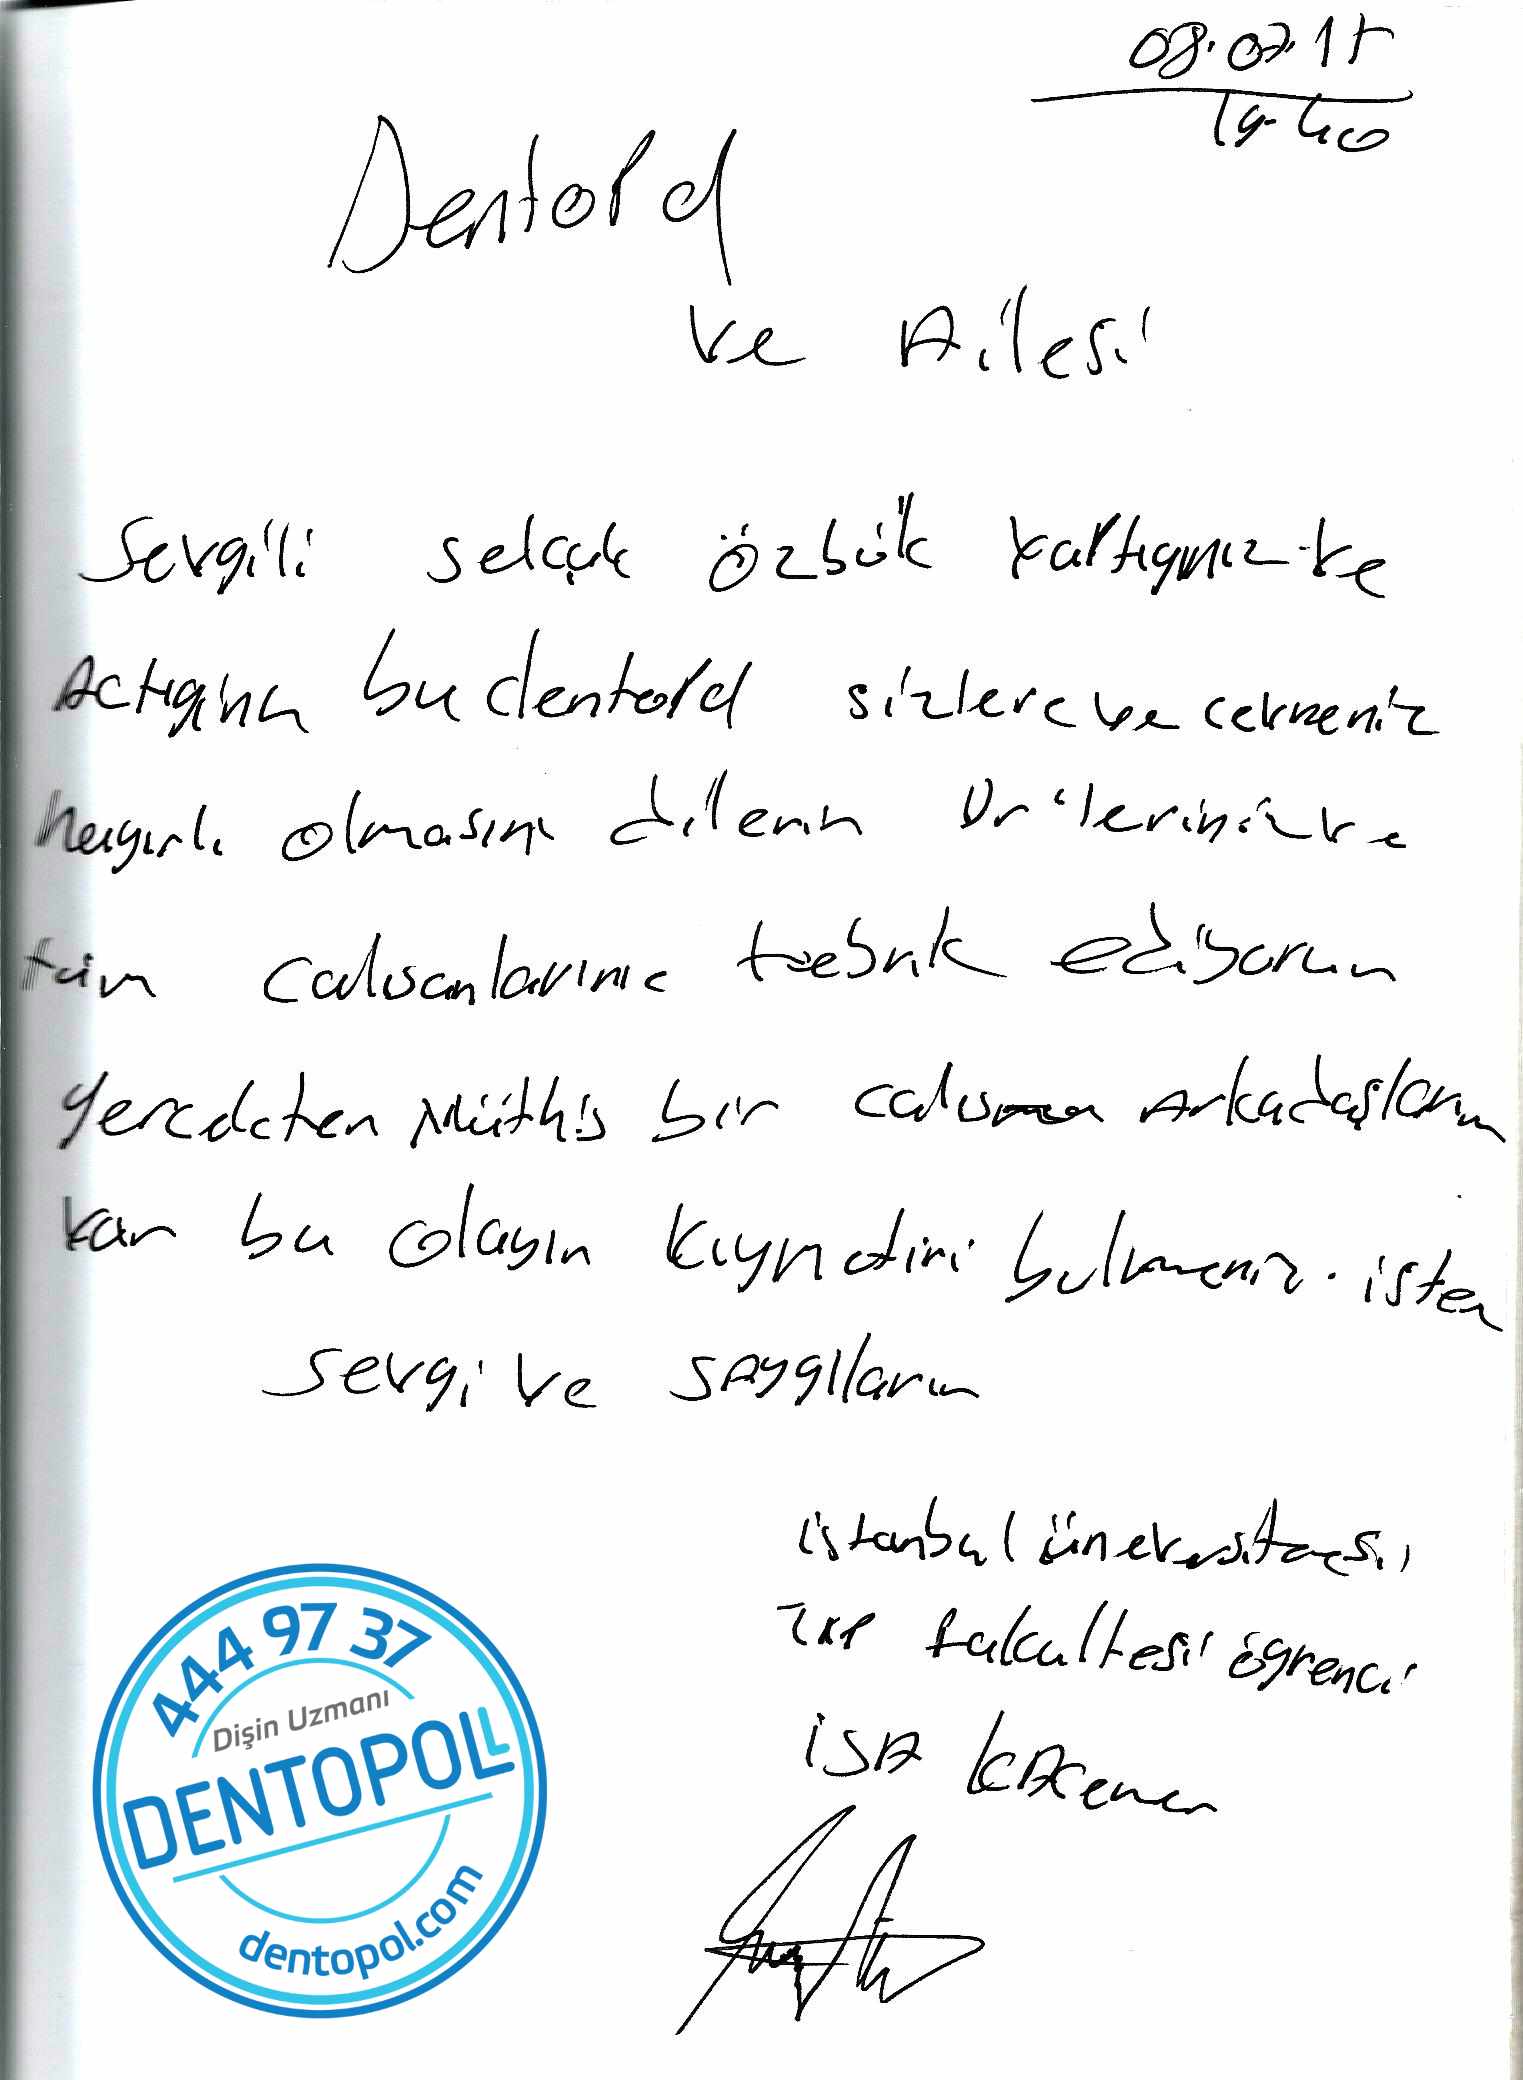 08.07.15
19.40
Dentopol
ve Ailesi
Sevgili selçuk özbük yaptığınız ve
Actığınız bu dentopol sizlere ve cevreniz
hayırlı olmasını dilerim Dr'leriniz ve
tüm calısanlarınıc tebrik ediyorum
gercekten Müthis bir calısma Arkadaşların
var bu olayın kıymetini bulmeniz. isten
sevgi ve SAygılarım
istanbul üneversitaesi
Tıp fakultesi öğrenci
iSA
444 97 37
Dişin Uzmanı
DENTOPOL
dentopol.com